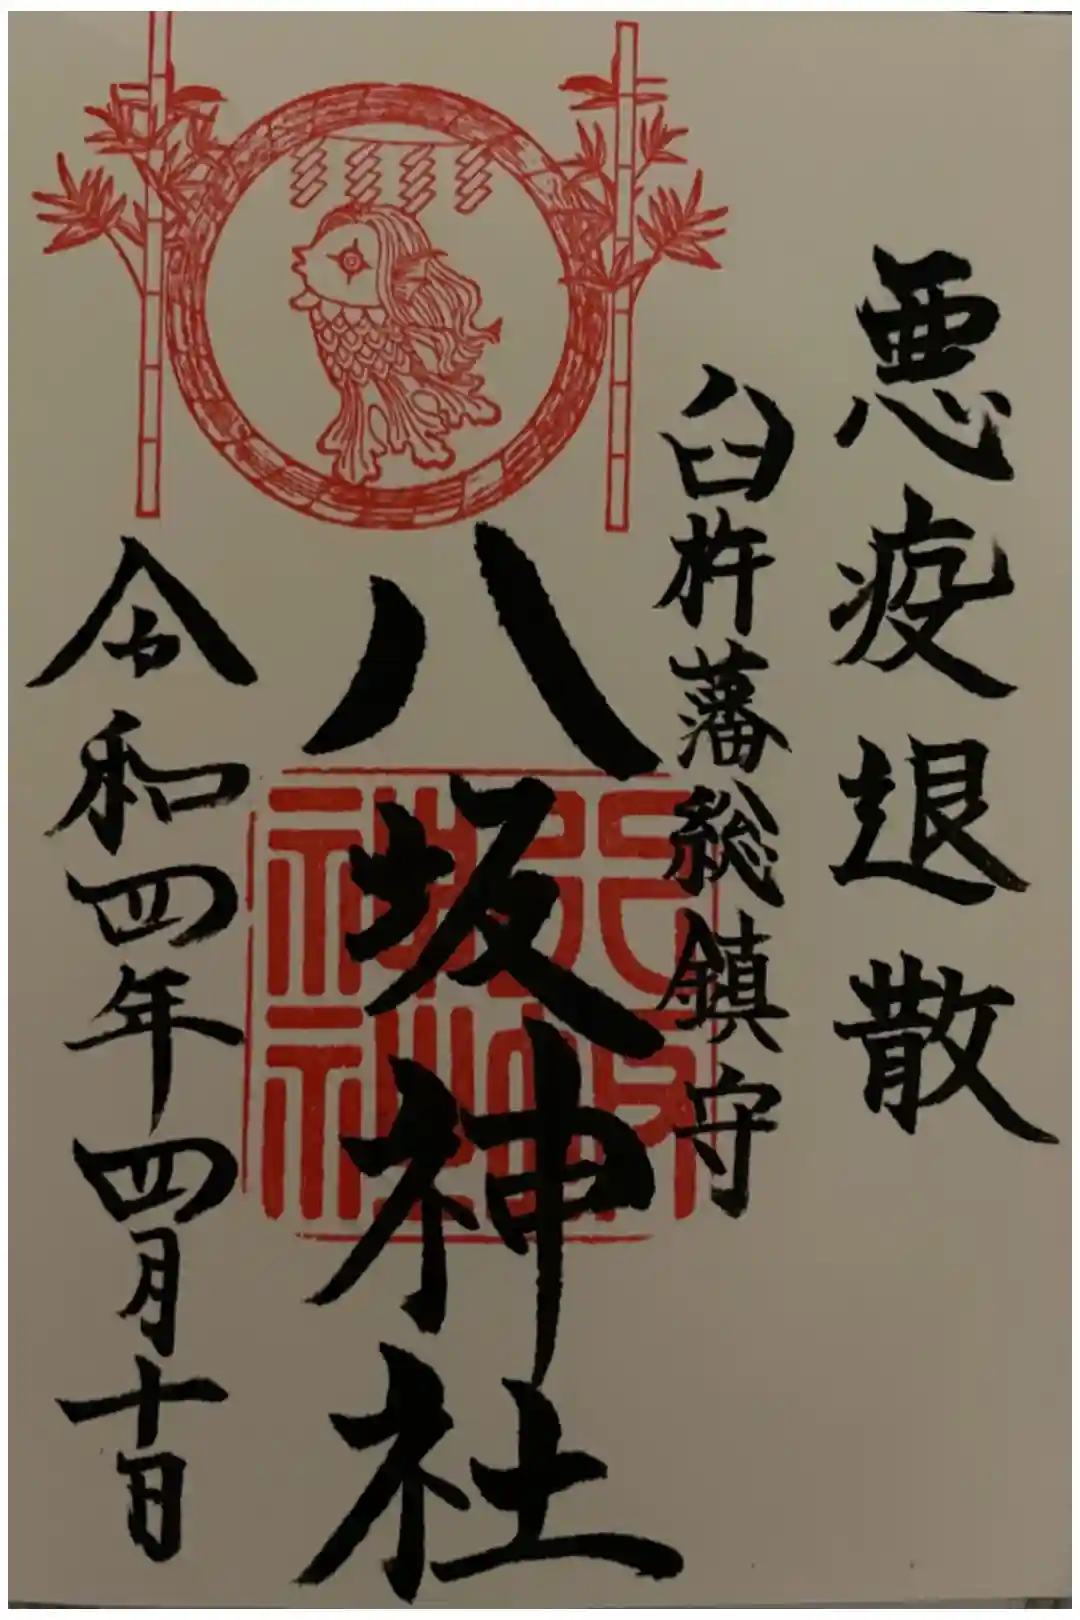 悪疫退散
臼杵藩総鎮守
八坂神社
八坂神社
令和四年四月十日